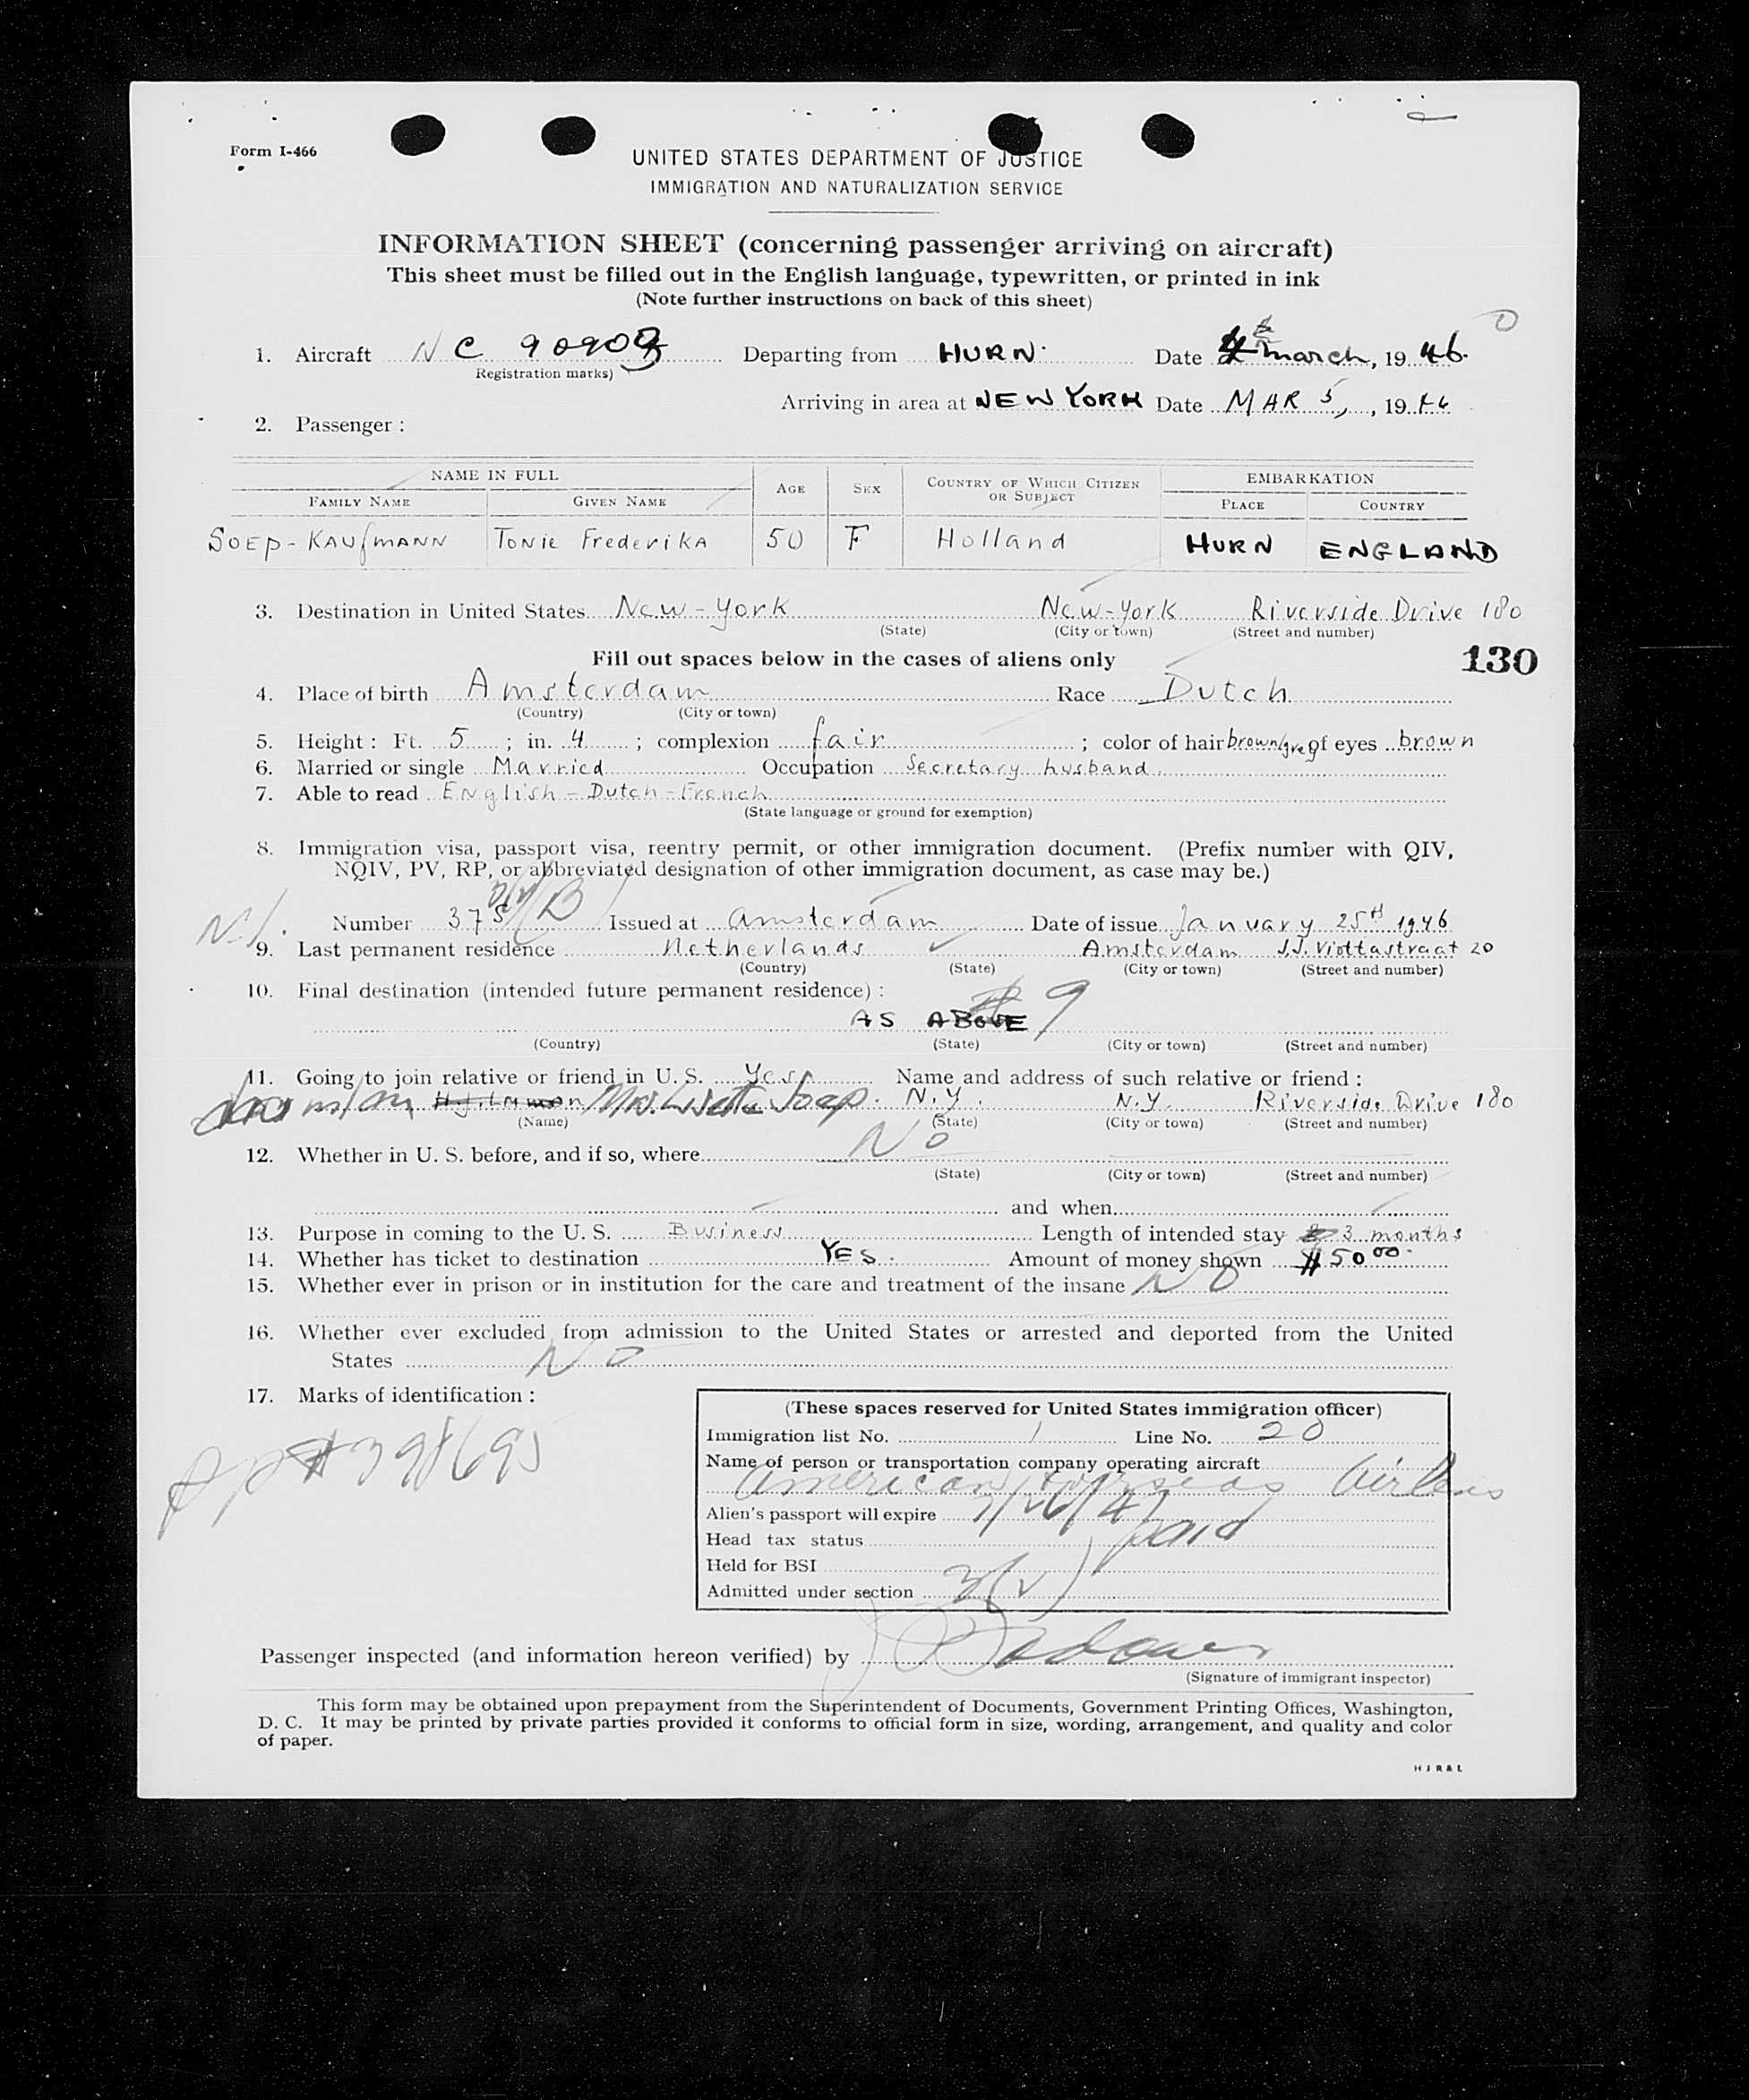 Form I-466
UNITED STATES DEPARTMENT OF JUSTICE
IMMIGRATION AND NATURALIZATION SERVICE
INFORMATION SHEET (concerning passenger arriving on aircraft)
This sheet must be filled out in the English language, typewritten, or printed in ink
(Note further instructions on back of this sheet)
1. Aircraft NC 90909 Departing from HURN. Date march, 19 46.
(Registration marks)
Arriving in area at NEW YORK Date MAR 5, 19 46
2. Passenger:
NAME IN FULL AGE SEX COUNTRY OF WHICH CITIZEN OR SUBJECT EMBARKATION
FAMILY NAME GIVEN NAME PLACE COUNTRY
SOEP-KAUfMANN TONIE FrederiKA 50 F Holland HURN ENGLAND
3. Destination in United States New-York New-York Riverside Drive 180
(State) (City or town) (Street and number)
Fill out spaces below in the cases of aliens only 130
4. Place of birth Amsterdam Race Dutch
(Country) (City or town)
5. Height: Ft. 5 ; in. 4 ; complexion fair ; color of hair brown/grey of eyes brown
6. Married or single Married Occupation Secretary husband
7. Able to read English-Dutch-French
(State language or ground for exemption)
8. Immigration visa, passport visa, reentry permit, or other immigration document. (Prefix number with QIV,
NQIV, PV, RP, or abbreviated designation of other immigration document, as case may be.)
Number 375 Issued at Amsterdam Date of issue January 25th 1946
9. Last permanent residence Netherlands Amsterdam J.J. Viottastraat 20
(Country) (State) (City or town) (Street and number)
10. Final destination (intended future permanent residence):
AS ABOVE 9
(Country) (State) (City or town) (Street and number)
11. Going to join relative or friend in U. S. Yes Name and address of such relative or friend:
Mrs. Soep. N.Y. N.Y. Riverside Drive 180
(Name) (State) (City or town) (Street and number)
12. Whether in U. S. before, and if so, where No
(State) (City or town) (Street and number)
and when
13. Purpose in coming to the U. S. Business Length of intended stay 3 months
14. Whether has ticket to destination YES. Amount of money shown $50 00.
15. Whether ever in prison or in institution for the care and treatment of the insane NO
16. Whether ever excluded from admission to the United States or arrested and deported from the United
States NO
17. Marks of identification:
(These spaces reserved for United States immigration officer)
Immigration list No. 1 Line No. 20
Name of person or transportation company operating aircraft
American Overseas Airlines
Alien's passport will expire
Head tax status paid
Held for BSI
Admitted under section 3(2)
Passenger inspected (and information hereon verified) by
(Signature of immigrant inspector)
This form may be obtained upon prepayment from the Superintendent of Documents, Government Printing Offices, Washington,
D. C. It may be printed by private parties provided it conforms to official form in size, wording, arrangement, and quality and color
of paper.
H J R & L